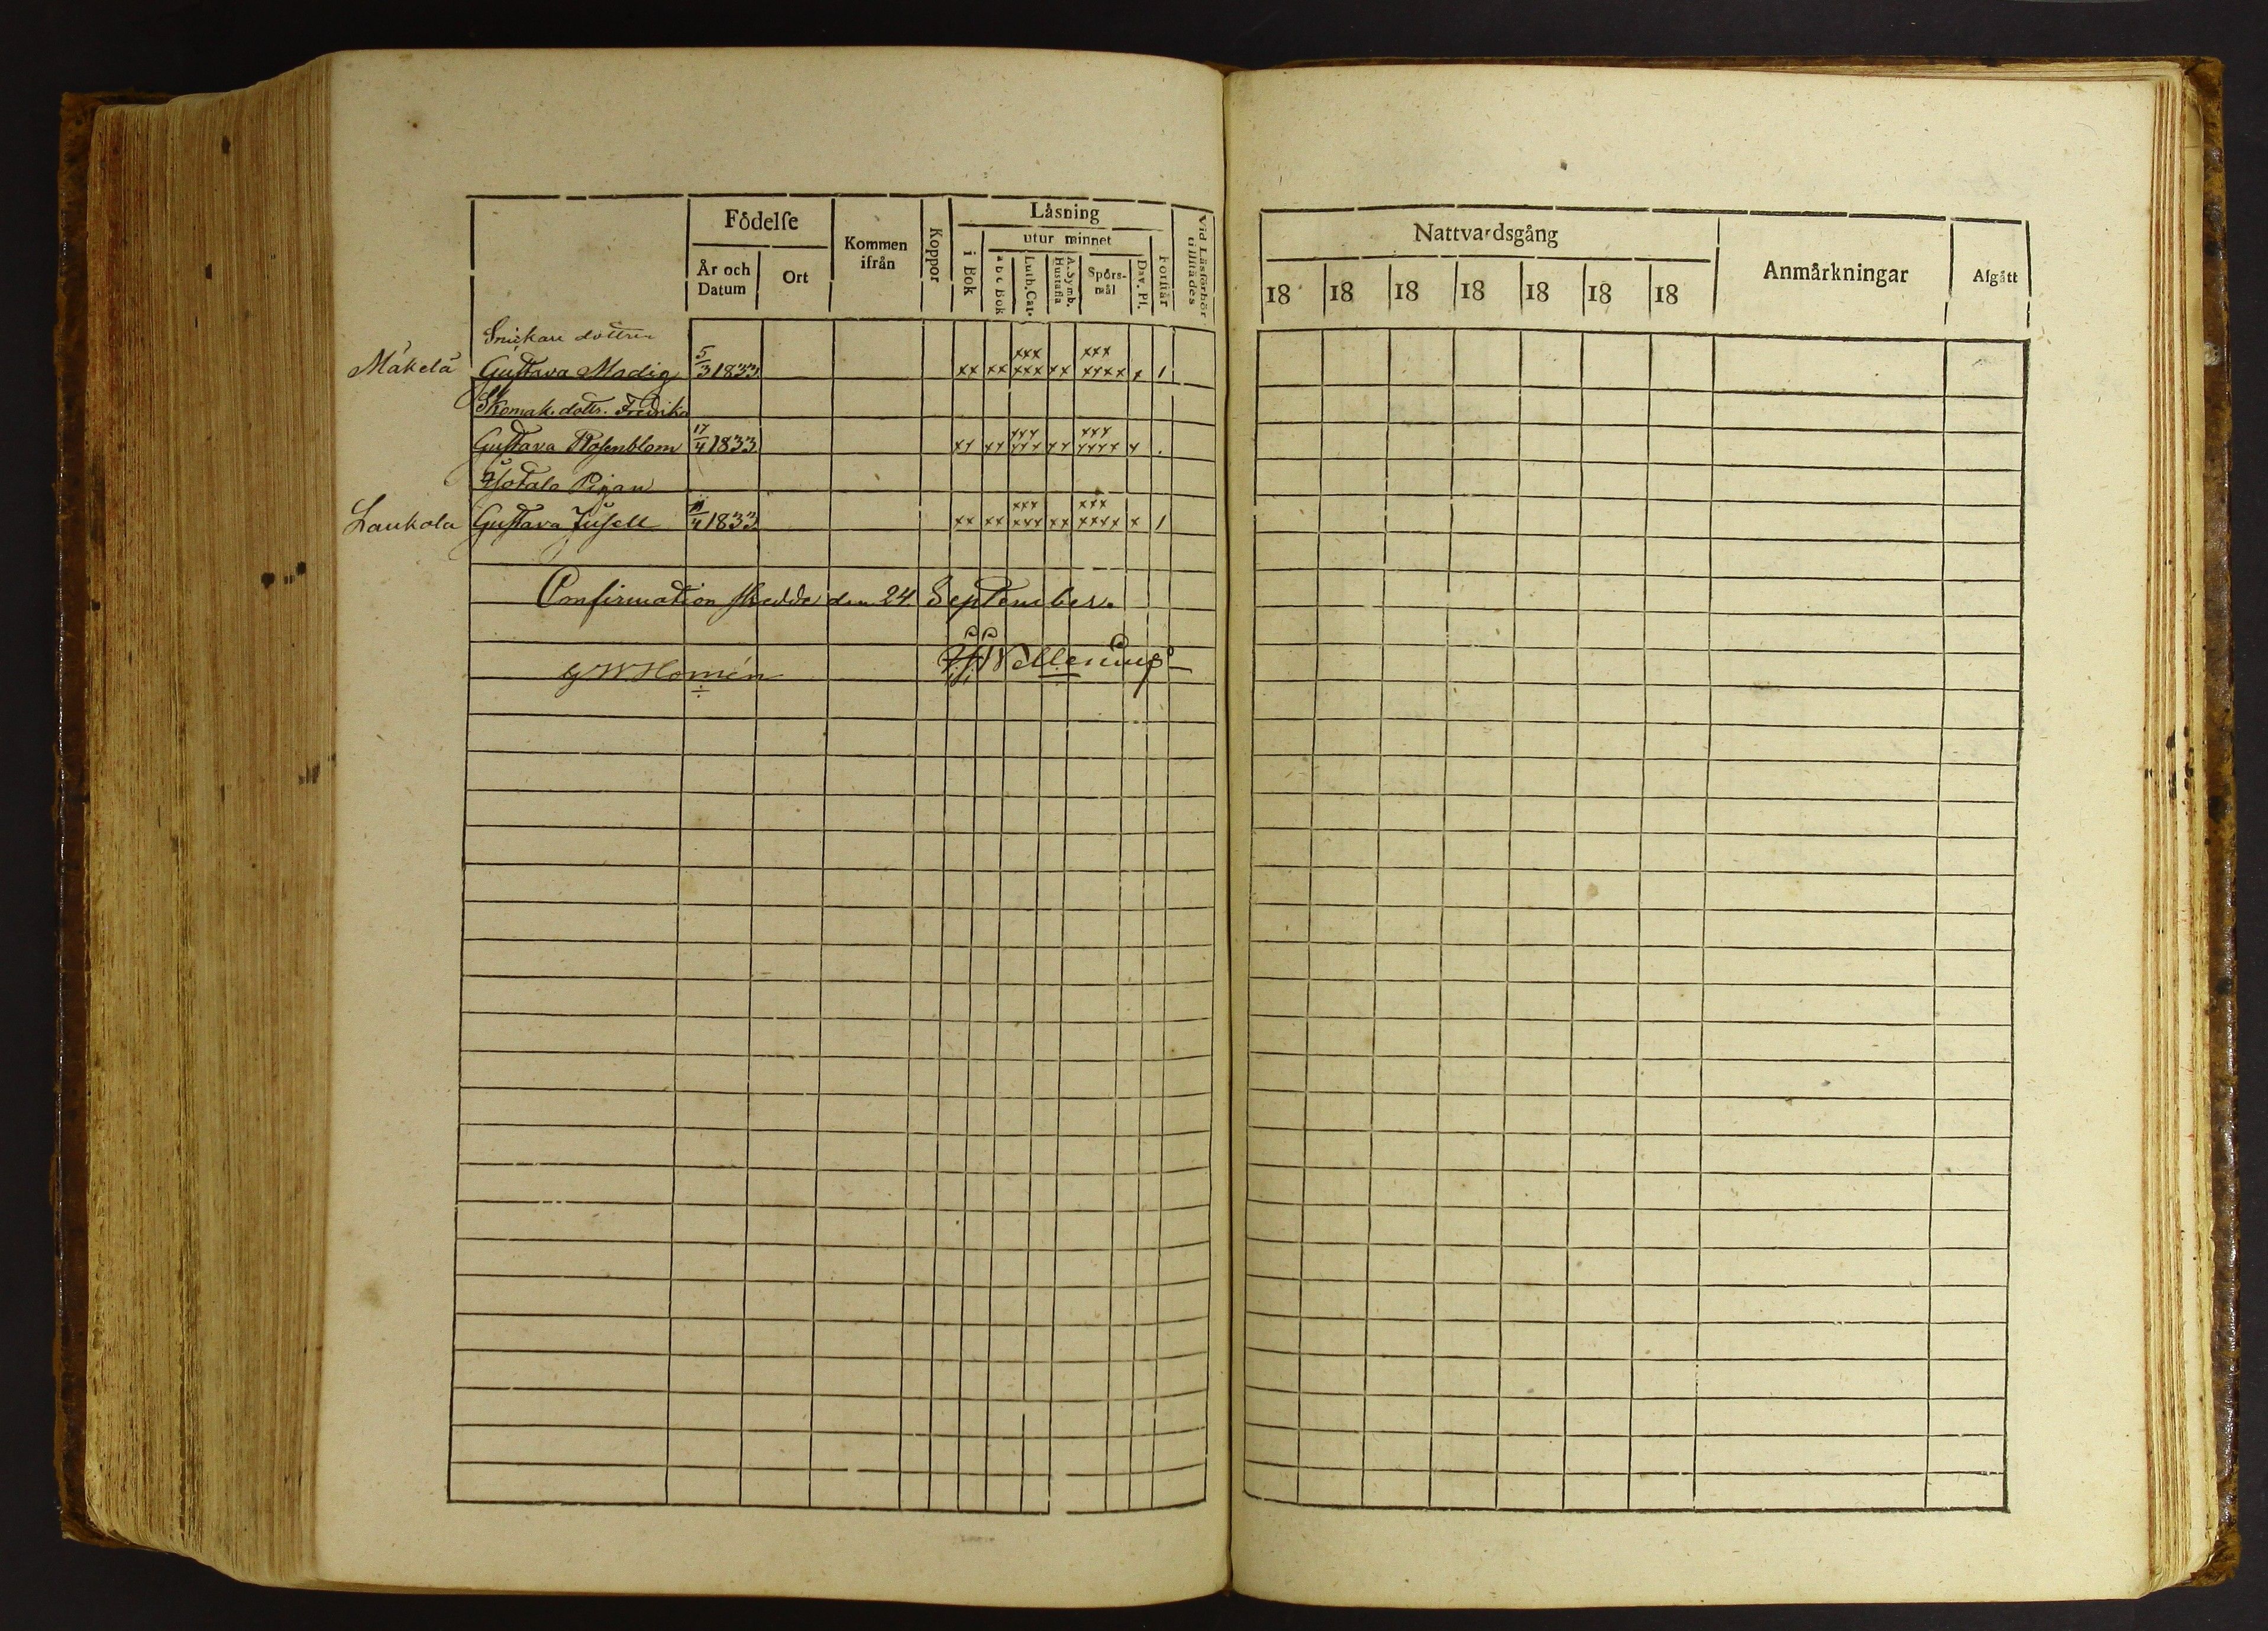 Födelse
Kommen ifrån
Koppor
Läsning
utur minnet
År och Datum
Ort
i Bok
abc Bok
Luth. Cat.
A. Symb. Hustafla
Spörs-mål
Dav. Ps.
Förstår
Vid Läsförhör tillstädes
Nattvardsgång
Anmärkningar
Afgått
18 18 18 18 18 18 18
Snickare dottren
Mäkelä Gustava Modig 5/3 1833 xx xx xxx xxx xx xxx xxxx x 1
Skomak. dottr. Fredrika
Gustava Rosenblom 17/4 1833 xx xx xxx xxx xx xxx xxxx x
Pigan
Laukola Gustava Jusell 4 1833 xx xx xxx xxx xx xxx xxxx x 1
Confirmation skedde den 24 September.
Homén
Wellenius